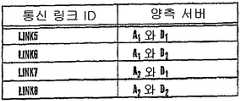 통신 링크 ID 양측 서버
LINK5 A₁ 와 D₁
LINK6 A₁ 와 D₂
LINK7 A₂ 와 D₁
LINK8 A₂ 와 D₂